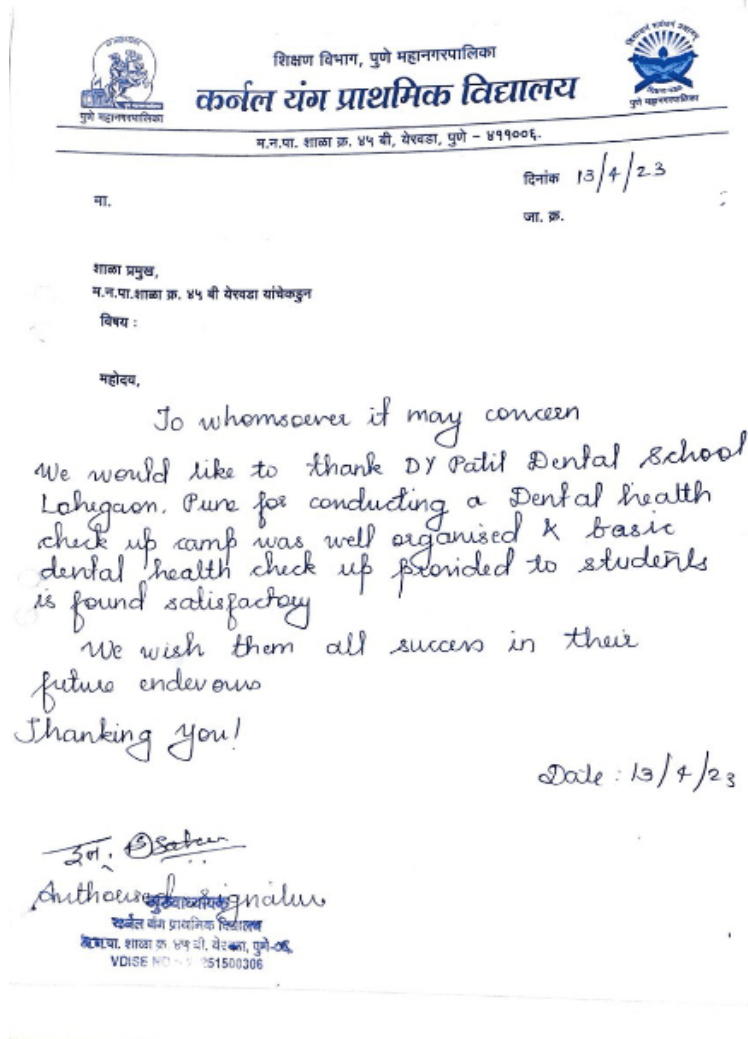 शिक्षण विभाग, पुणे महानगरपालिका
कर्नल यंग प्राथमिक विद्यालय
पुणे महानगरपालिका
पुणे महानगरपालिका
म.न.पा. शाळा क्र. ४५ बी, येरवडा, पुणे – ४११००६.
दिनांक 13/4/23
मा.
जा. क्र.
शाळा प्रमुख,
म.न.पा.शाळा क्र. ४५ बी येरवडा यांचेकडुन
विषय :
महोदय,
To whomsoever it may concern
We would like to thank DY Patil Dental School
Lohegaon. Pune for conducting a Dental health
check up camp was well organised & basic
dental health check up provided to students
is found satisfactory
We wish them all success in their
future endevours
Thanking You!
Date : 13/4/23
Signature
मुख्याध्यापक
कर्नल यंग प्राथमिक विद्यालय
म.न.पा. शाळा क्र. ४५ बी, येरवडा, पुणे-०६
251500306